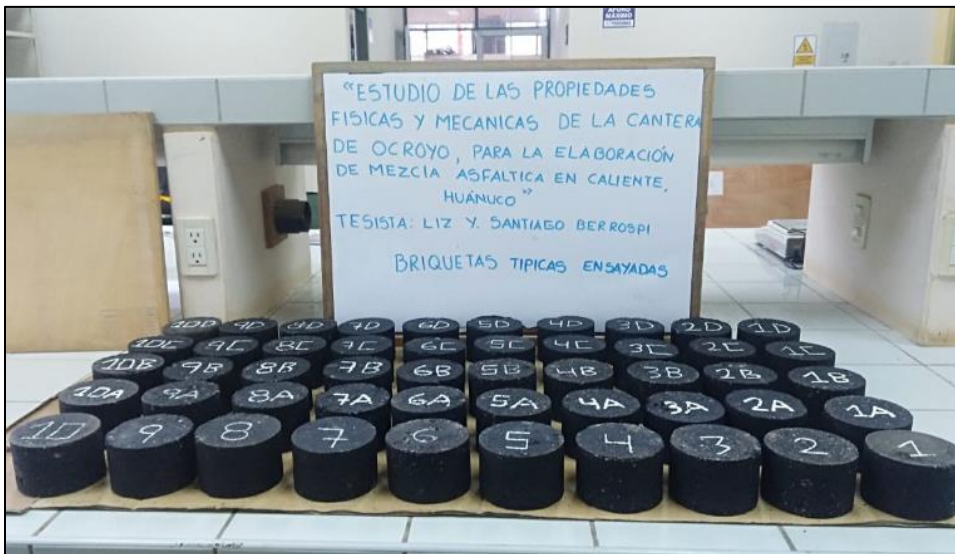 APORO
MÁXIMO
"ESTUDIO DE LAS PROPIEDADES
FISICAS Y MECANICAS DE LA CANTERA
DE OCROYO, PARA LA ELABORACIÓN
DE MEZCLA ASFALTICA EN CALIENTE,
HUÁNUCO"
TESISTA: LIZ Y. SANTIAGO BERROSPI
BRIQUETAS TIPICAS ENSAYADAS
10D 9D 8D 7D 6D 5D 4D 3D 2D 1D
10C 9C 8C 7C 6C 5C 4C 3C 2C 1C
10B 9B 8B 7B 6B 5B 4B 3B 2B 1B
10A 9A 8A 7A 6A 5A 4A 3A 2A 1A
10 9 8 7 6 5 4 3 2 1